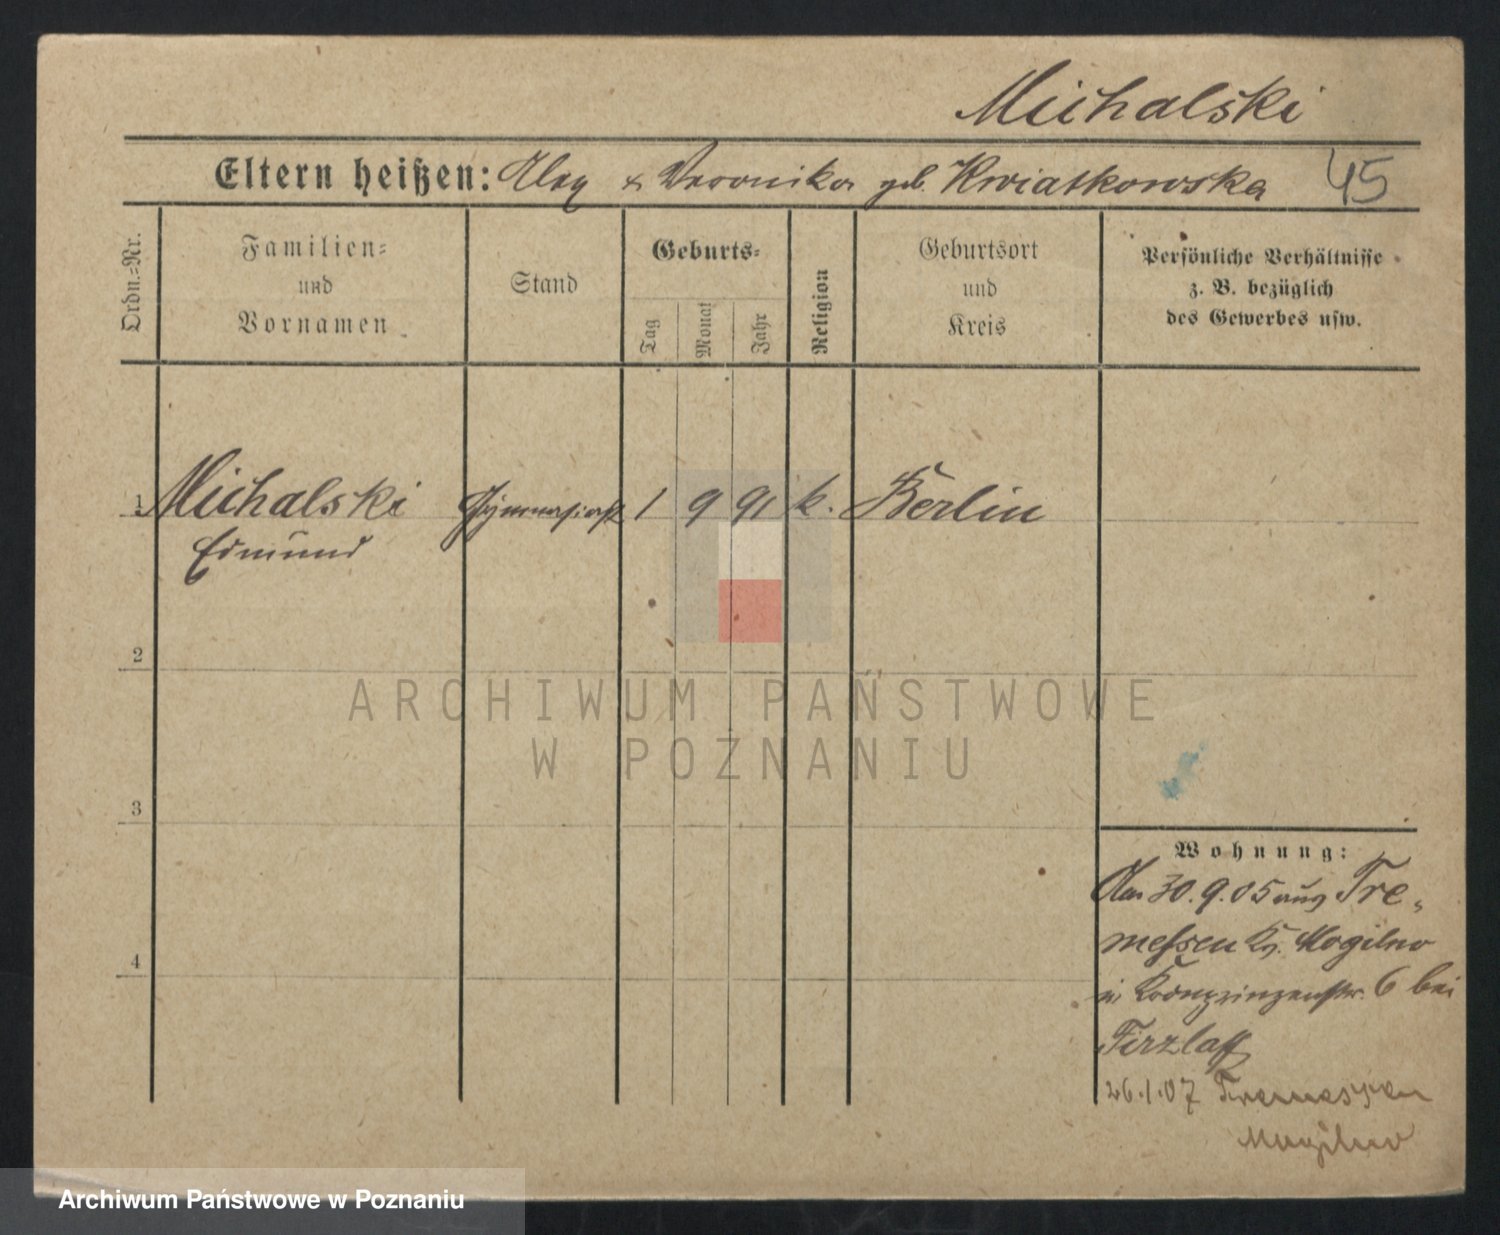 Michalski
Eltern heißen: Alex & Veronika geb. Kwiatkowska 45
Ordn.=Nr.
Familien=
und
Vornamen
Stand
Geburts=
Tag
Monat
Jahr
Religion
Geburtsort
und
Kreis
Persönliche Verhältnisse
z. B. bezüglich
des Gewerbes usw.
1 Michalski Gymnasiast 1 9 91 k. Berlin
Edmund
2
ARCHIWUM PAŃSTWOWE
W POZNANIU
3
Wohnung:
Am 30.9.05 aus Tre-
messen Kr. Mogilno
in Kronprinzenstr. 6 bei
Firzlaff
4
26.1.07 Tremessen
Mogilno
Archiwum Państwowe w Poznaniu